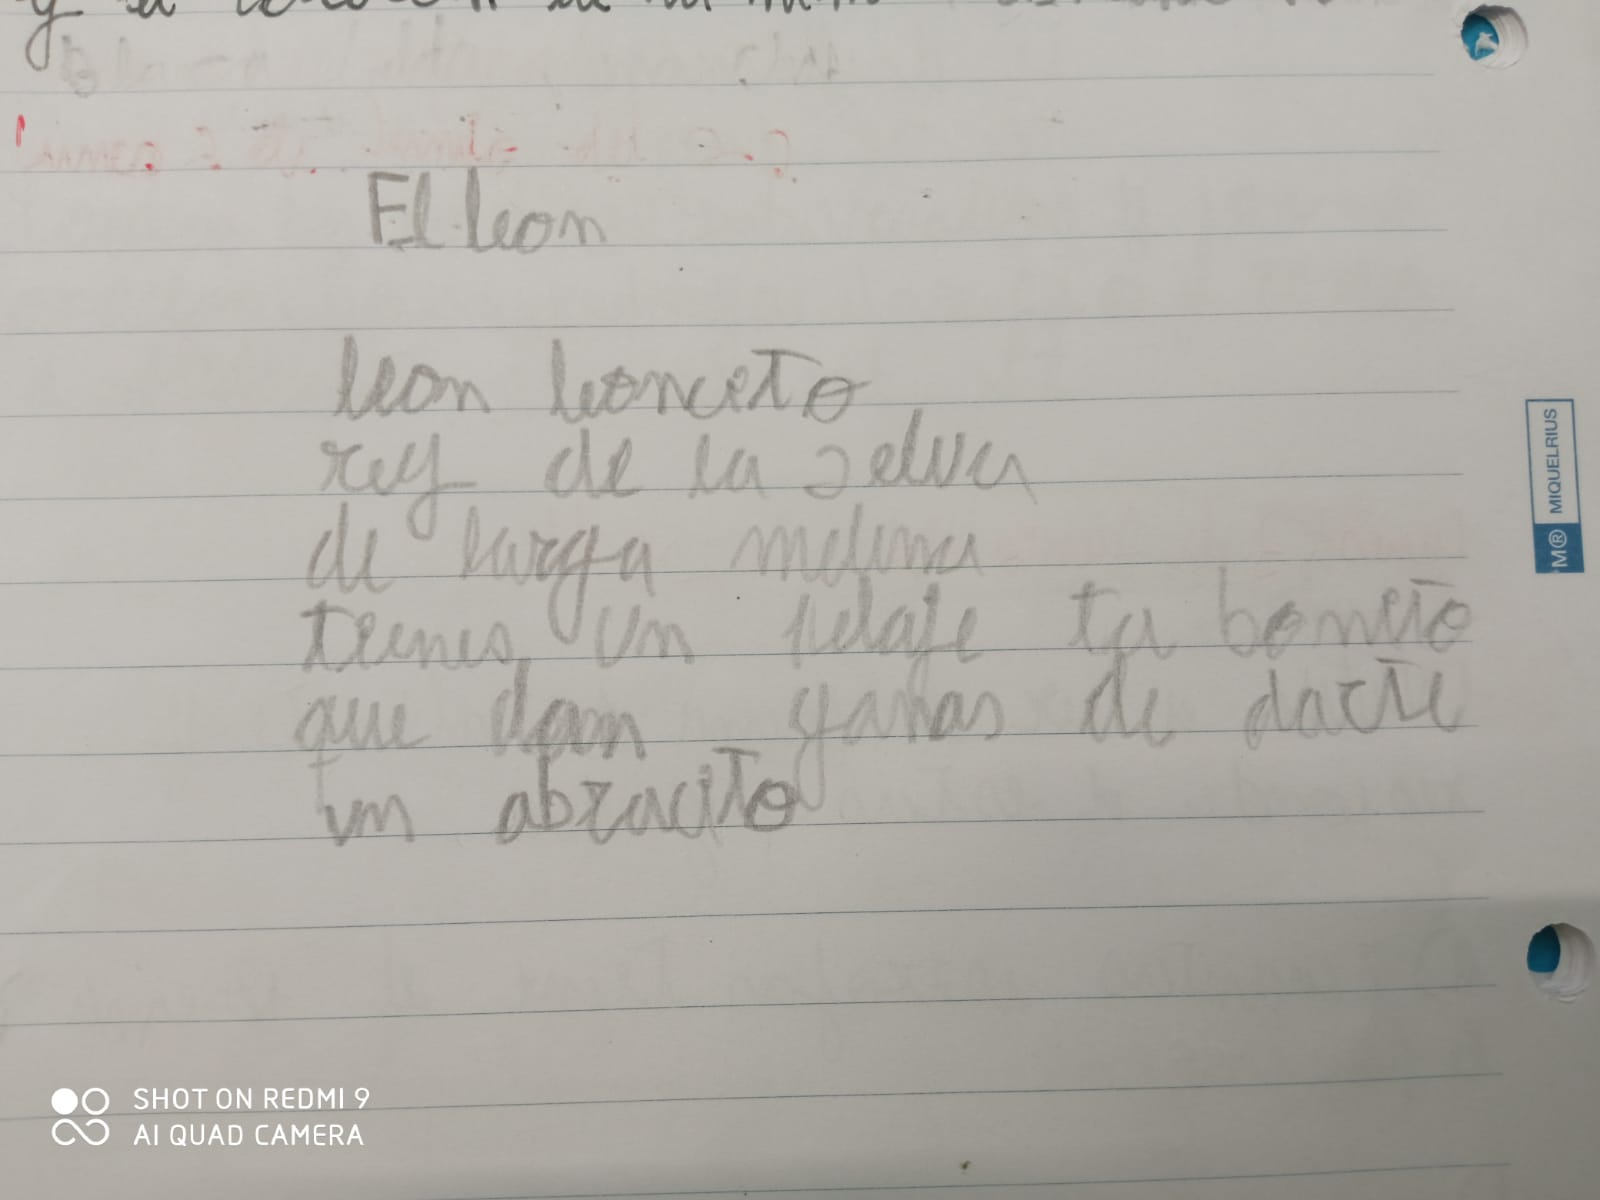 El leon
leon leoncito
rey de la selva
de larga melena
tienes un pelaje ta bonito
que dan ganas de darte
un abracito
M® MIQUELRIUS
SHOT ON REDMI 9
AI QUAD CAMERA